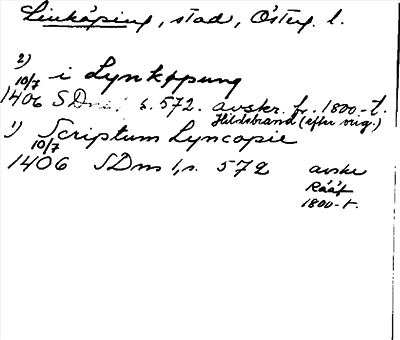 Linköping, stad, Österg. l.
2) i Lynkøpung
10/7
1406 SDns 1, s. 572. avskr. fr. 1800-t.
Hildebrand (efter orig.)
1) Scriptum Lyncopie
10/7
1406 SDns 1, s. 572 avskr
Rääf
1800-t.